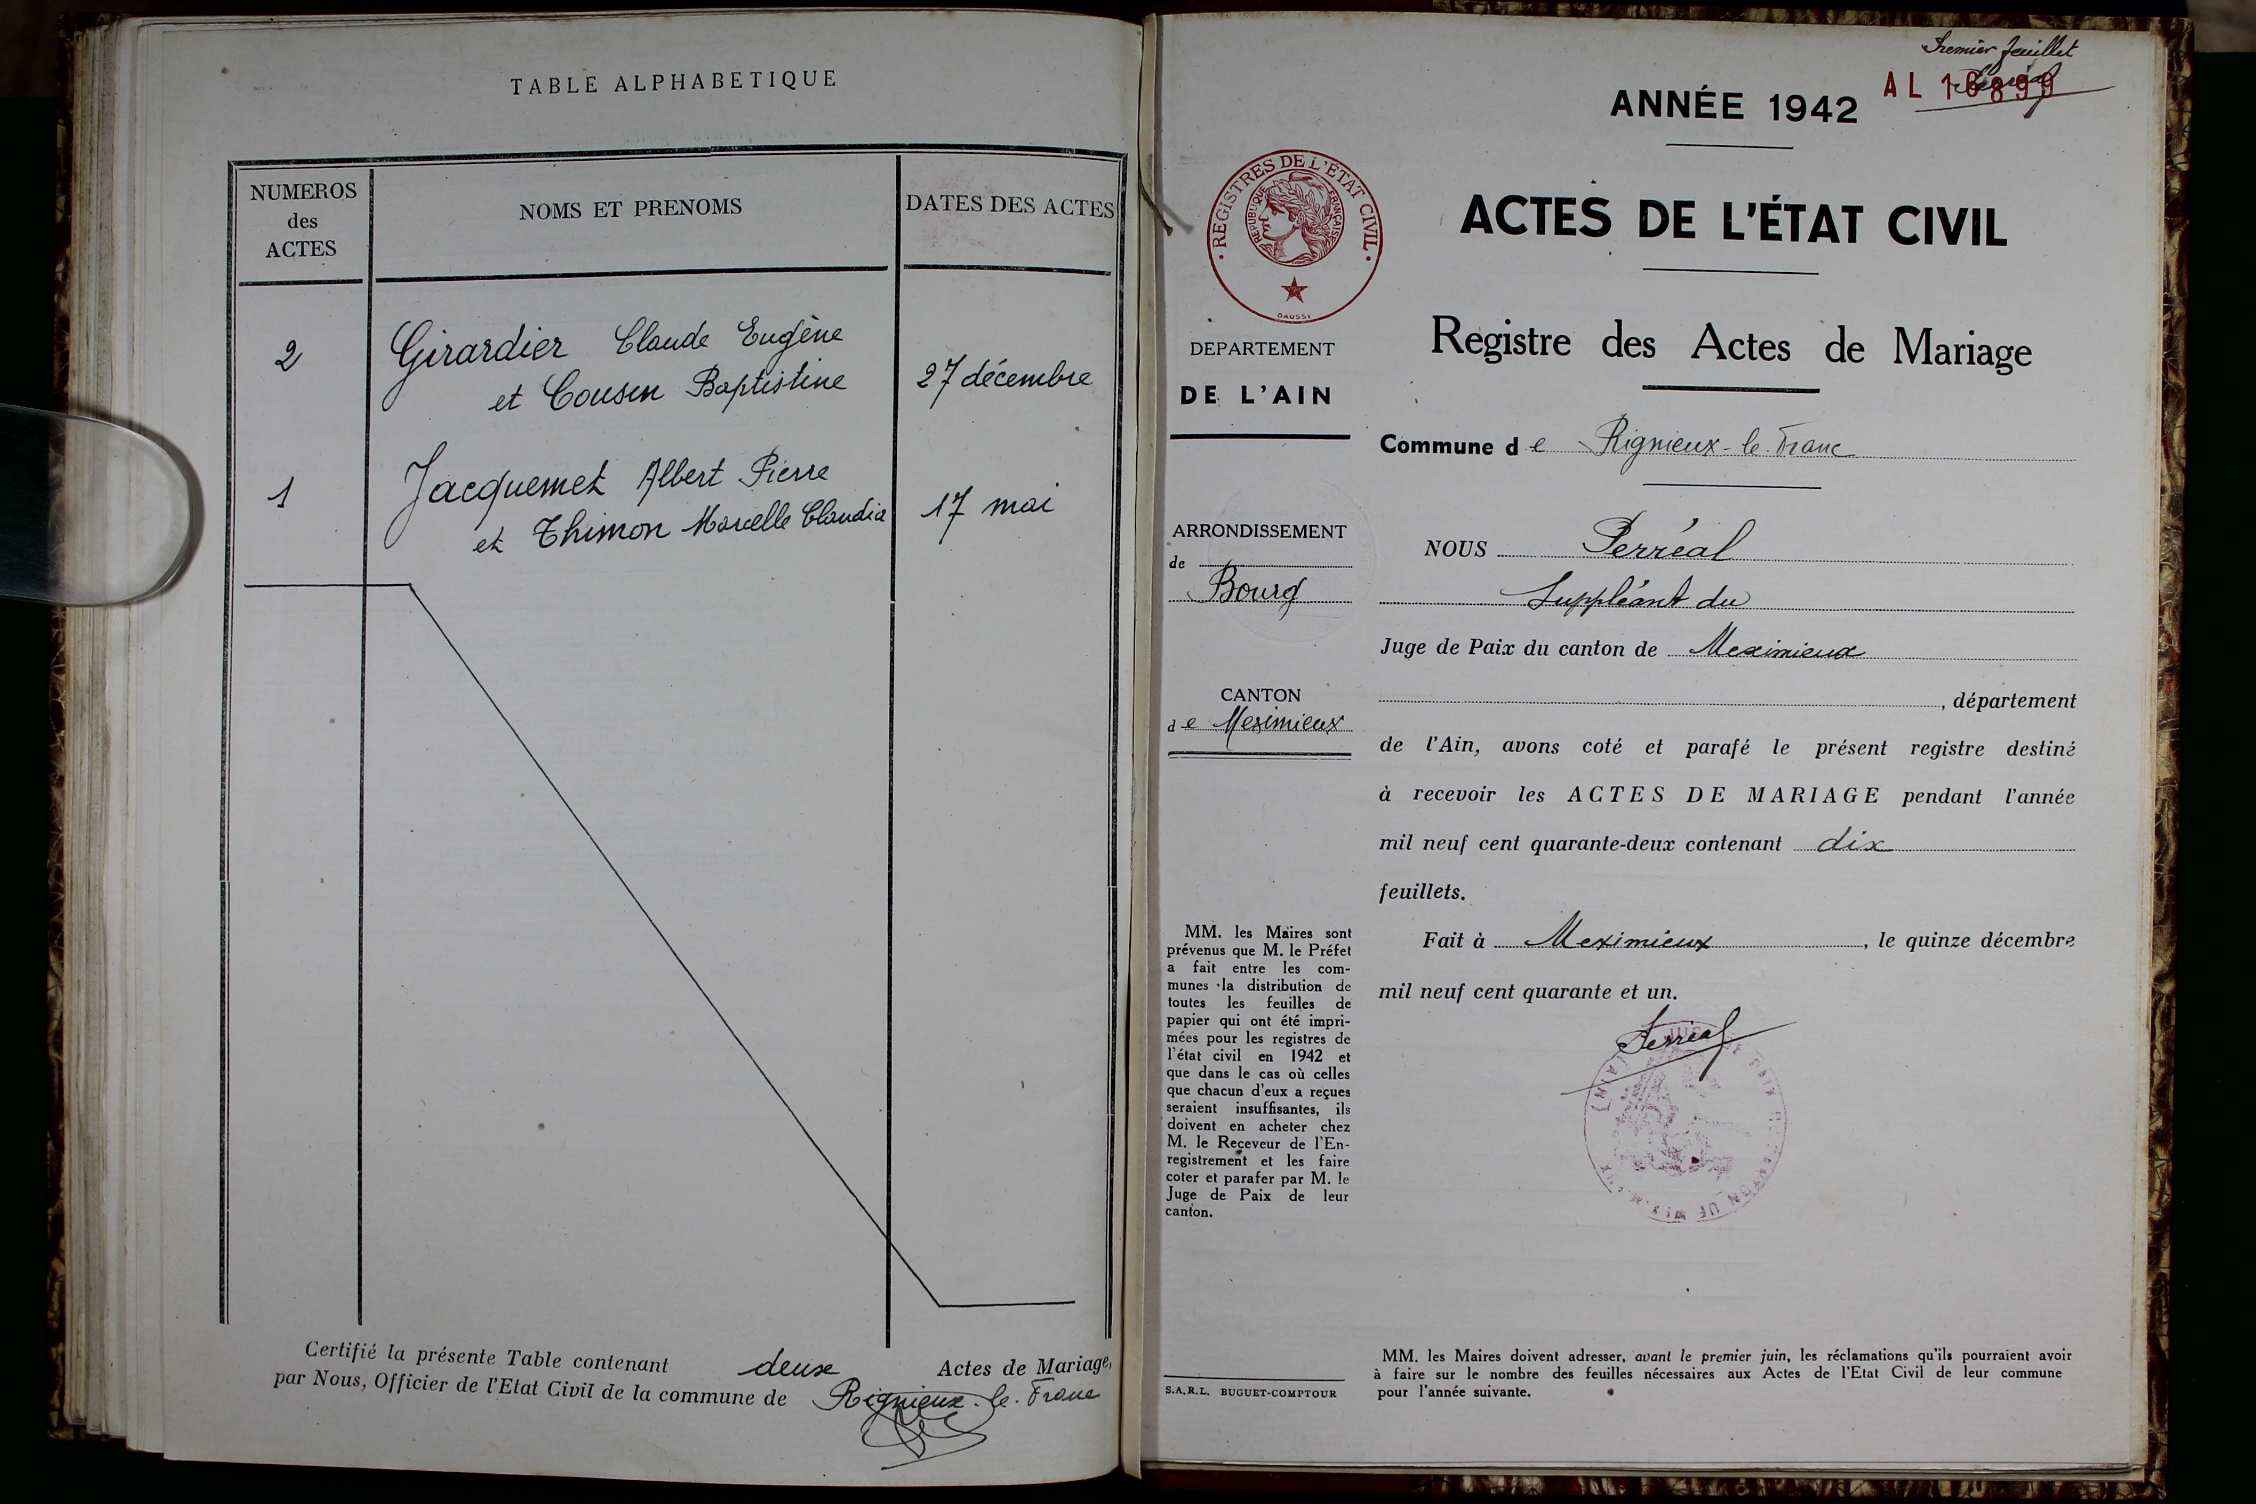 TABLE ALPHABETIQUE
NUMEROS
des
ACTES
NOMS ET PRENOMS
DATES DES ACTES
2
Girardier Claude Eugène
et Cousin Baptistine
27 décembre
1
Jacquemet Albert Pierre
et Thimon Marcelle Claudia
17 mai
Certifié la présente Table contenant deux Actes de Mariage,
par Nous, Officier de l'Etat Civil de la commune de Rignieux-le-Franc
Premier feuillet
AL 16899
ANNÉE 1942
ACTES DE L'ÉTAT CIVIL
REGISTRES DE L'ÉTAT CIVIL
REPUBLIQUE FRANÇAISE
DAUSSI
Registre des Actes de Mariage
DEPARTEMENT
DE L'AIN
Commune de Rignieux-le-Franc
ARRONDISSEMENT
de
Bourg
NOUS Perréal
Suppléant du
Juge de Paix du canton de Meximieux
CANTON
de Meximieux
, département
de l'Ain, avons coté et parafé le présent registre destiné
à recevoir les ACTES DE MARIAGE pendant l'année
mil neuf cent quarante-deux contenant dix
feuillets.
Fait à Meximieux, le quinze décembre
mil neuf cent quarante et un.
Perréal
MM. les Maires sont
prévenus que M. le Préfet
a fait entre les com-
munes la distribution de
toutes les feuilles de
papier qui ont été impri-
mées pour les registres de
l'état civil en 1942 et
que dans le cas où celles
que chacun d'eux a reçues
seraient insuffisantes, ils
doivent en acheter chez
M. le Receveur de l'En-
registrement et les faire
coter et parafer par M. le
Juge de Paix de leur
canton.
S.A.R.L. BUGUET-COMPTOUR
MM. les Maires doivent adresser, avant le premier juin, les réclamations qu'ils pourraient avoir
à faire sur le nombre des feuilles nécessaires aux Actes de l'Etat Civil de leur commune
pour l'année suivante.